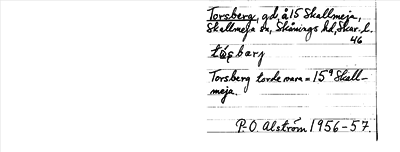 Torsberg, gd, å 15 Skallmeja,
Skallmeja sn, Skånings hd, Skar. l.
46
tɷ́ʂbarj
Torsberg torde vara = 15ᵃ Skall-
meja.
P-O. Alström 1956-57.